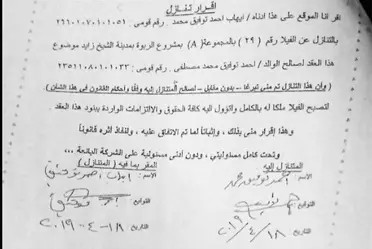 إقرار تنازل
نقر انا الموقع على هذا ادناه / ايهاب احمد توفيق محمد . رقم قومى : ٢٦٦٠١٠٧٠١٠١٠٥١
بالتنازل عن الفيلا رقم ( ٢٩ ) بالمجموعة( A ) بمشروع الربوة بمدينة الشيخ زايد موضوع
هذا العقد لصالح الوالد / احمد توفيق محمد مصطفى . رقم قومى : ٢٣٥١١٠٨٠١٠١٠٣٣
( وان هذا التنازل تم منى تبرعا - بدون مقابل - لصالح المتنازل اليه وفقا لأحكام القانون فى هذا الشأن )
لتصبح الفيلا ملكا له بالكامل وتؤول اليه كافة الحقوق والالتزامات الواردة ببنود هذا العقد .
وهذا إقرار منى بذلك ، وإثباتا لما تم الاتفاق عليه ، ولنفاذ اثره قانونا
وتحت كامل مسئوليتى ، ودون أدنى مسئولية على الشركة البائعة ...
المتنازل اليه
المقر بما فيه ( المتنازل )
الاسم : احمد توفيق محمد
الاسم : ايهاب احمد توفيق
التوقيع
التوقيع
التاريخ ١٨/٤/٢٠١٩
التاريخ ١٨-٤-٢٠١٩